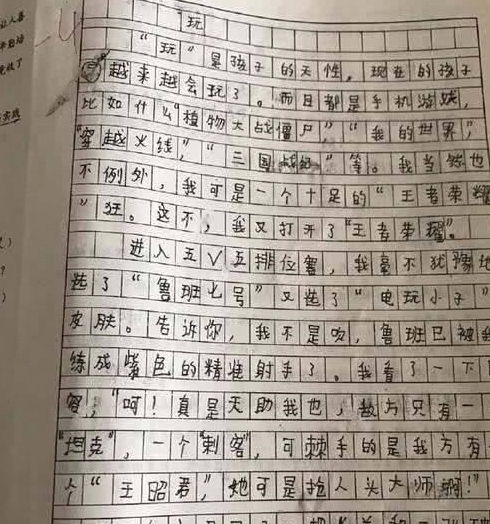 玩
“玩”是孩子的天性，现在的孩子
越来越会玩了。而且都是手机游戏，
比如什么“植物大战僵尸”“我的世界”，
“穿越火线”，“三国战纪”等。我当然也
不例外，我可是一个十足的“王者荣耀
”狂。这不，我又打开了“王者荣耀”。
进入五V五排位赛，我毫不犹豫地
选了“鲁班七号”又选了“电玩小子”
皮肤。告诉你，我不是吹，鲁班已被我
练成紫色的精准射手了。我看了一下
“呵！真是天助我也，敌方只有一
“坦克”，一个“刺客”，可棘手的是我方有
个“王昭君”，她可是抢人头大师啊！”